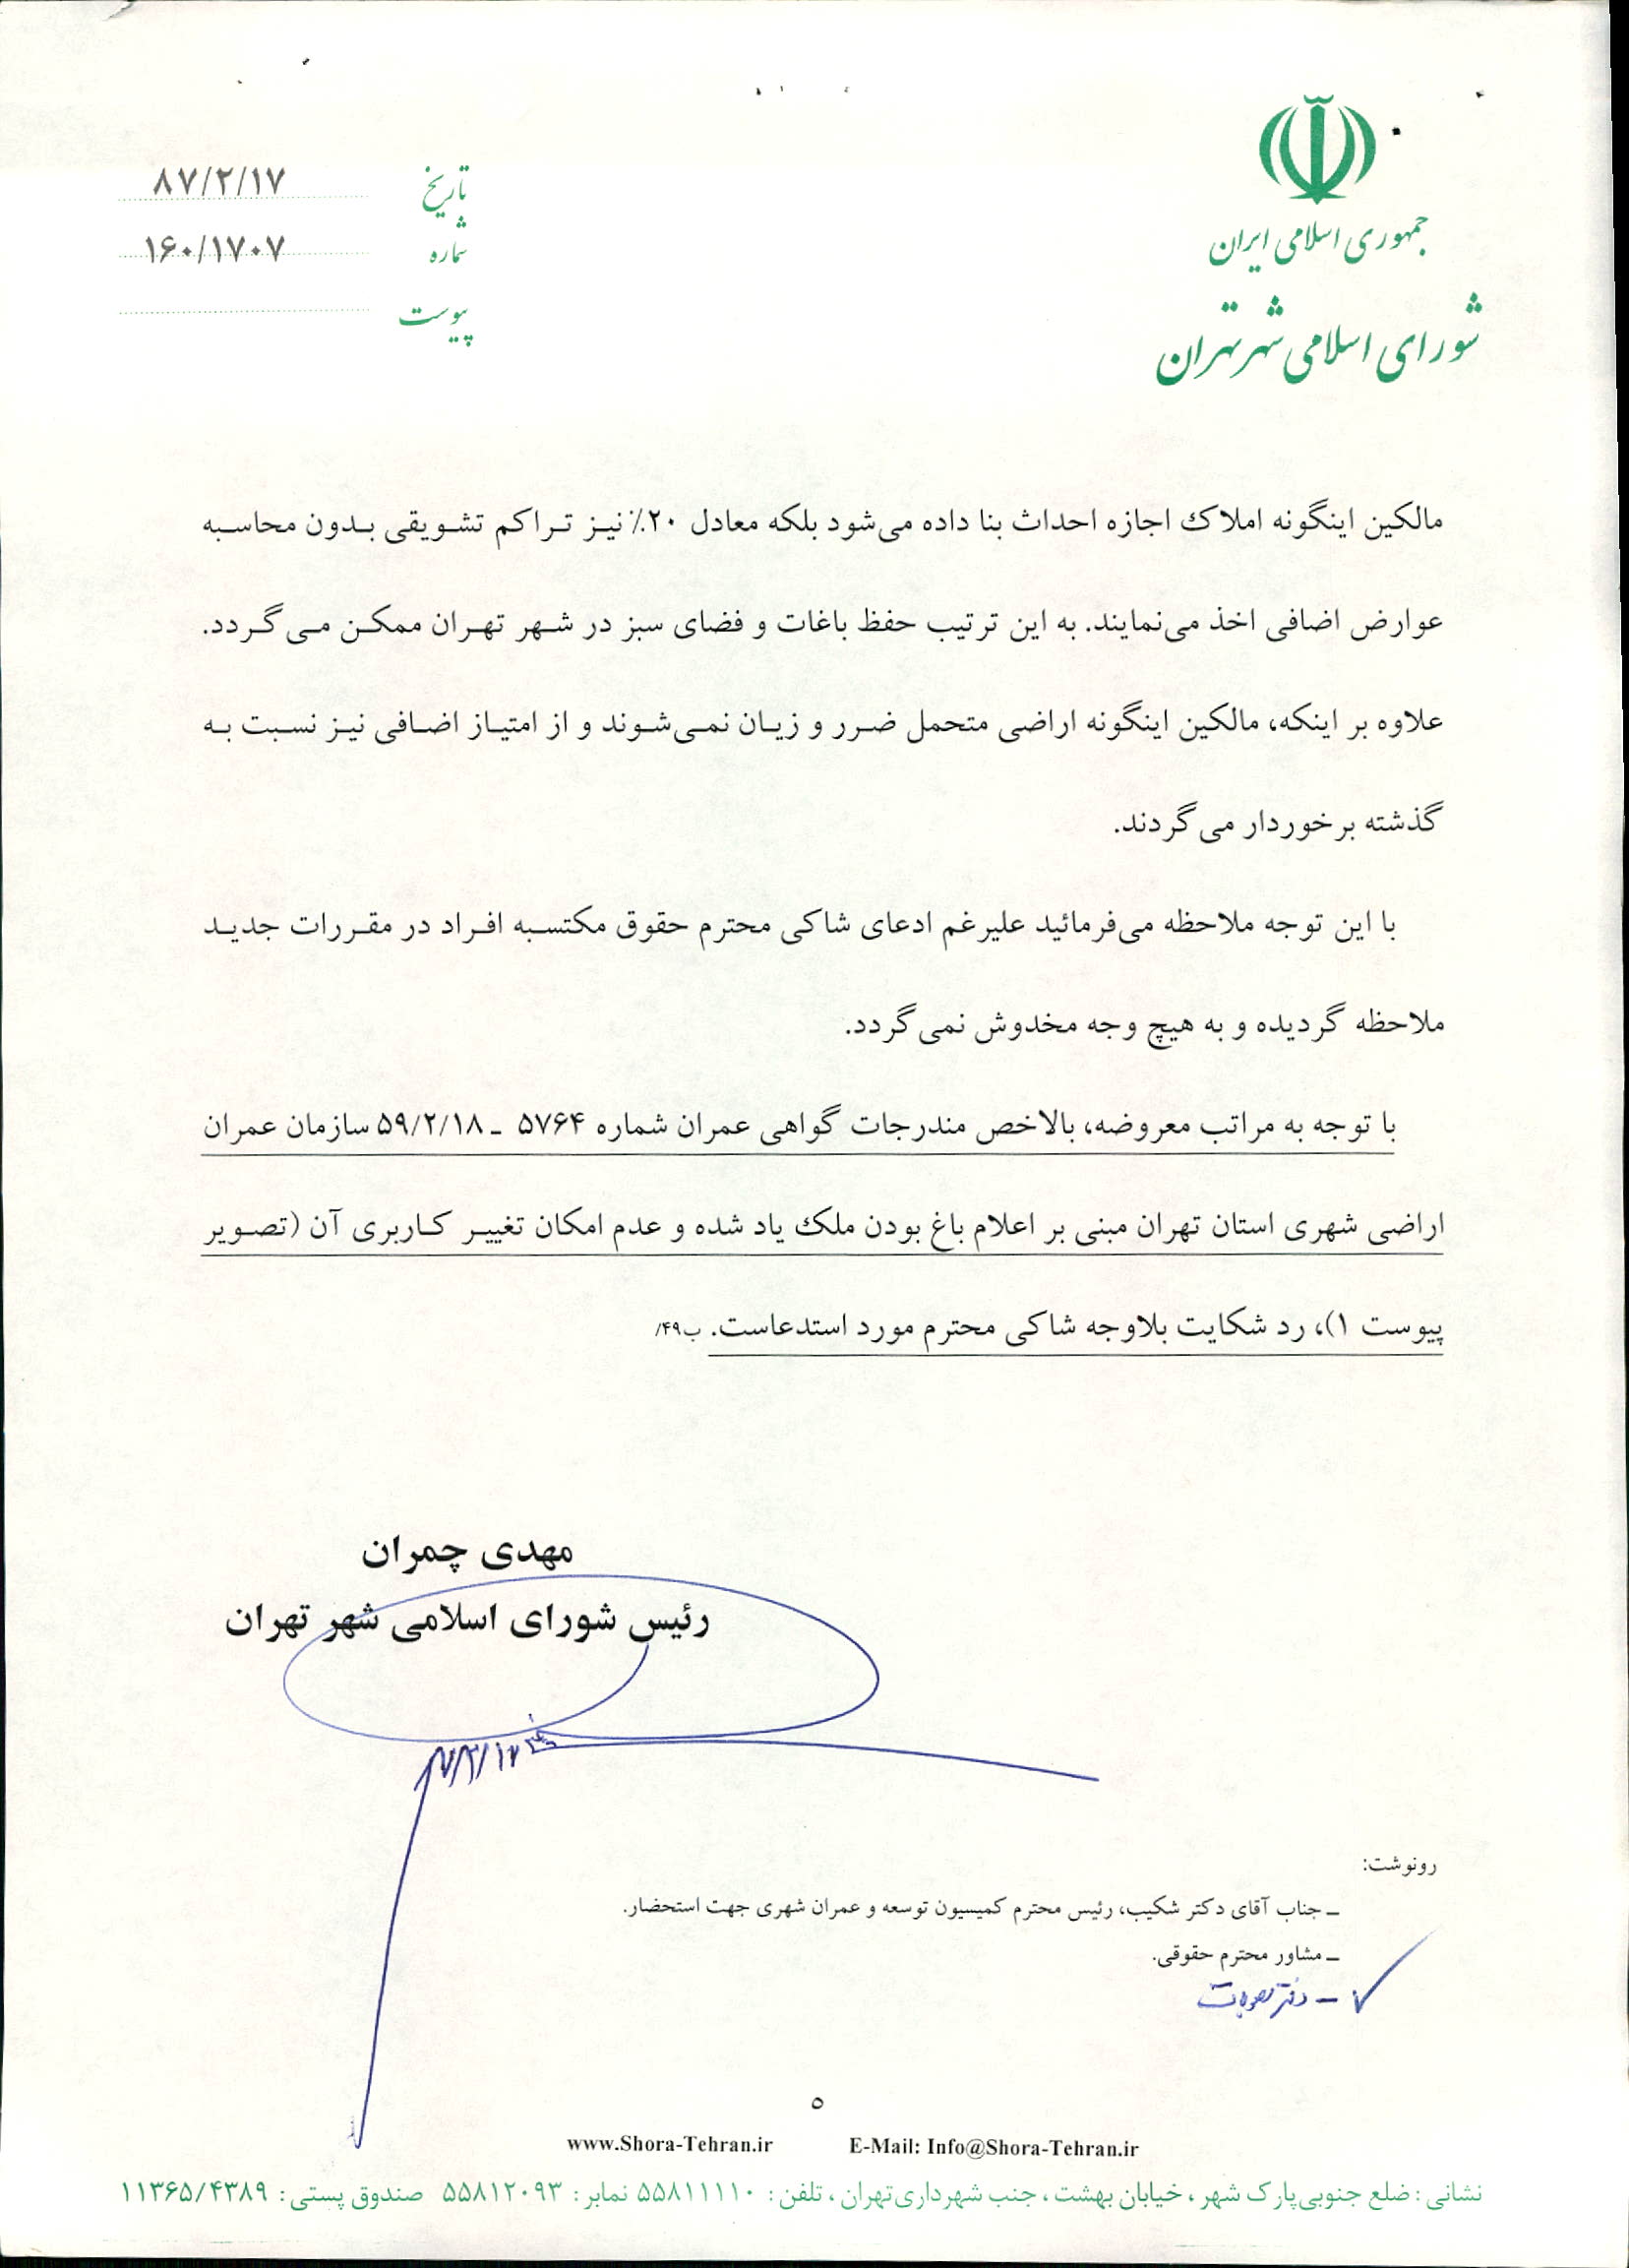 جمهوری اسلامی ایران
شورای اسلامی شهر تهران
تاریخ ۸۷/۲/۱۷
شماره ۱۶۰/۱۷۰۷
پیوست
مالکین اینگونه املاک اجازه احداث بنا داده می‌شود بلکه معادل ۲۰٪ نیز تراکم تشویقی بدون محاسبه
عوارض اضافی اخذ می‌نمایند. به این ترتیب حفظ باغات و فضای سبز در شهر تهران ممکن می گردد.
علاوه بر اینکه، مالکین اینگونه اراضی متحمل ضرر و زیان نمی‌شوند و از امتیاز اضافی نیز نسبت به
گذشته برخوردار می گردند.
با این توجه ملاحظه می‌فرمائید علیرغم ادعای شاکی محترم حقوق مکتسبه افراد در مقررات جدید
ملاحظه گردیده و به هیچ وجه مخدوش نمی گردد.
با توجه به مراتب معروضه، بالاخص مندرجات گواهی عمران شماره ۵۷۶۴ ـ ۵۹/۲/۱۸ سازمان عمران
اراضی شهری استان تهران مبنی بر اعلام باغ بودن ملک یاد شده و عدم امکان تغییر کاربری آن (تصویر
پیوست ۱)، رد شکایت بلاوجه شاکی محترم مورد استدعاست. ب۴۹/
مهدی چمران
رئیس شورای اسلامی شهر تهران
رونوشت:
ـ جناب آقای دکتر شکیب، رئیس محترم کمیسیون توسعه و عمران شهری جهت استحضار.
ـ مشاور محترم حقوقی.
ـ دفتر مصوبات
۵
www.Shora-Tehran.ir E-Mail: Info@Shora-Tehran.ir
نشانی : ضلع جنوبی پارک شهر ، خیابان بهشت ، جنب شهرداری تهران ، تلفن : ۵۵۸۱۱۱۱۰ نمابر : ۵۵۸۱۲۰۹۳ صندوق پستی : ۱۱۳۶۵/۴۳۸۹